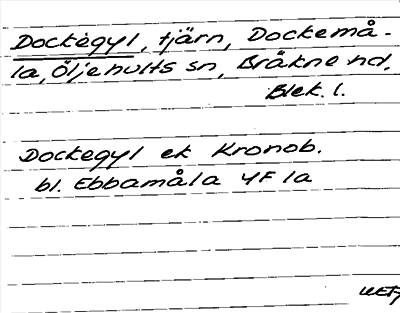 Dockègyl, tjärn, Dockemå-
la, Öljehults sn, Bräkne hd,
Blek. l.
Dockegyl ek Kronob.
bl. Ebbamåla 4F 1a